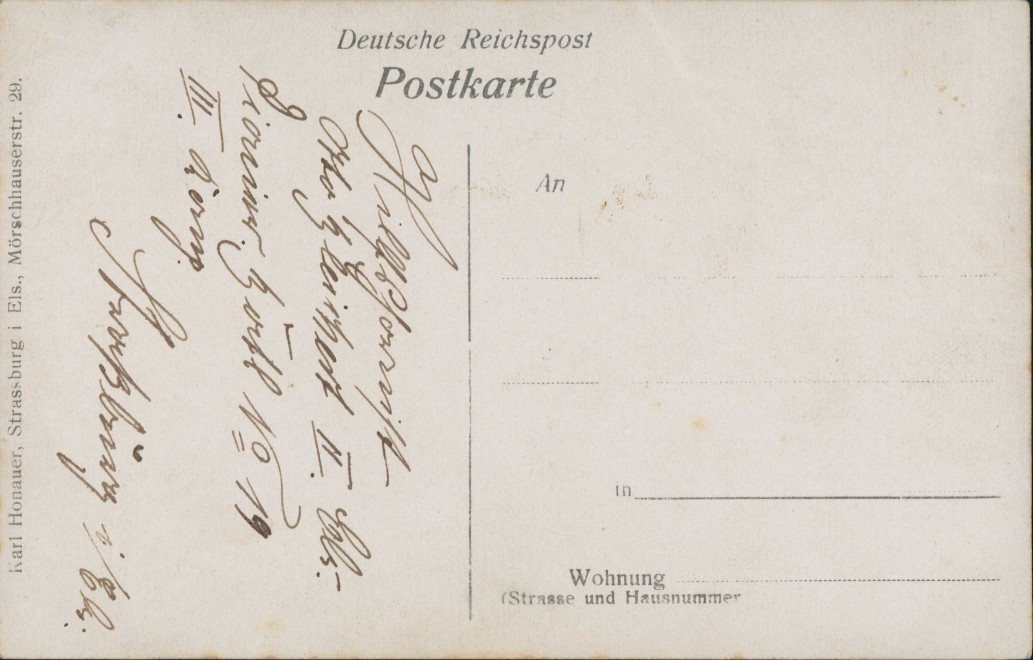 Deutsche Reichspost
Postkarte
An
in
Wohnung
(Strasse und Hausnummer
Otto II. Els.
Pionier. Batl No 19
III. Komp.
Straßburg i/Els.
Karl Honauer, Strassburg i Els., Mörschhauserstr. 29.